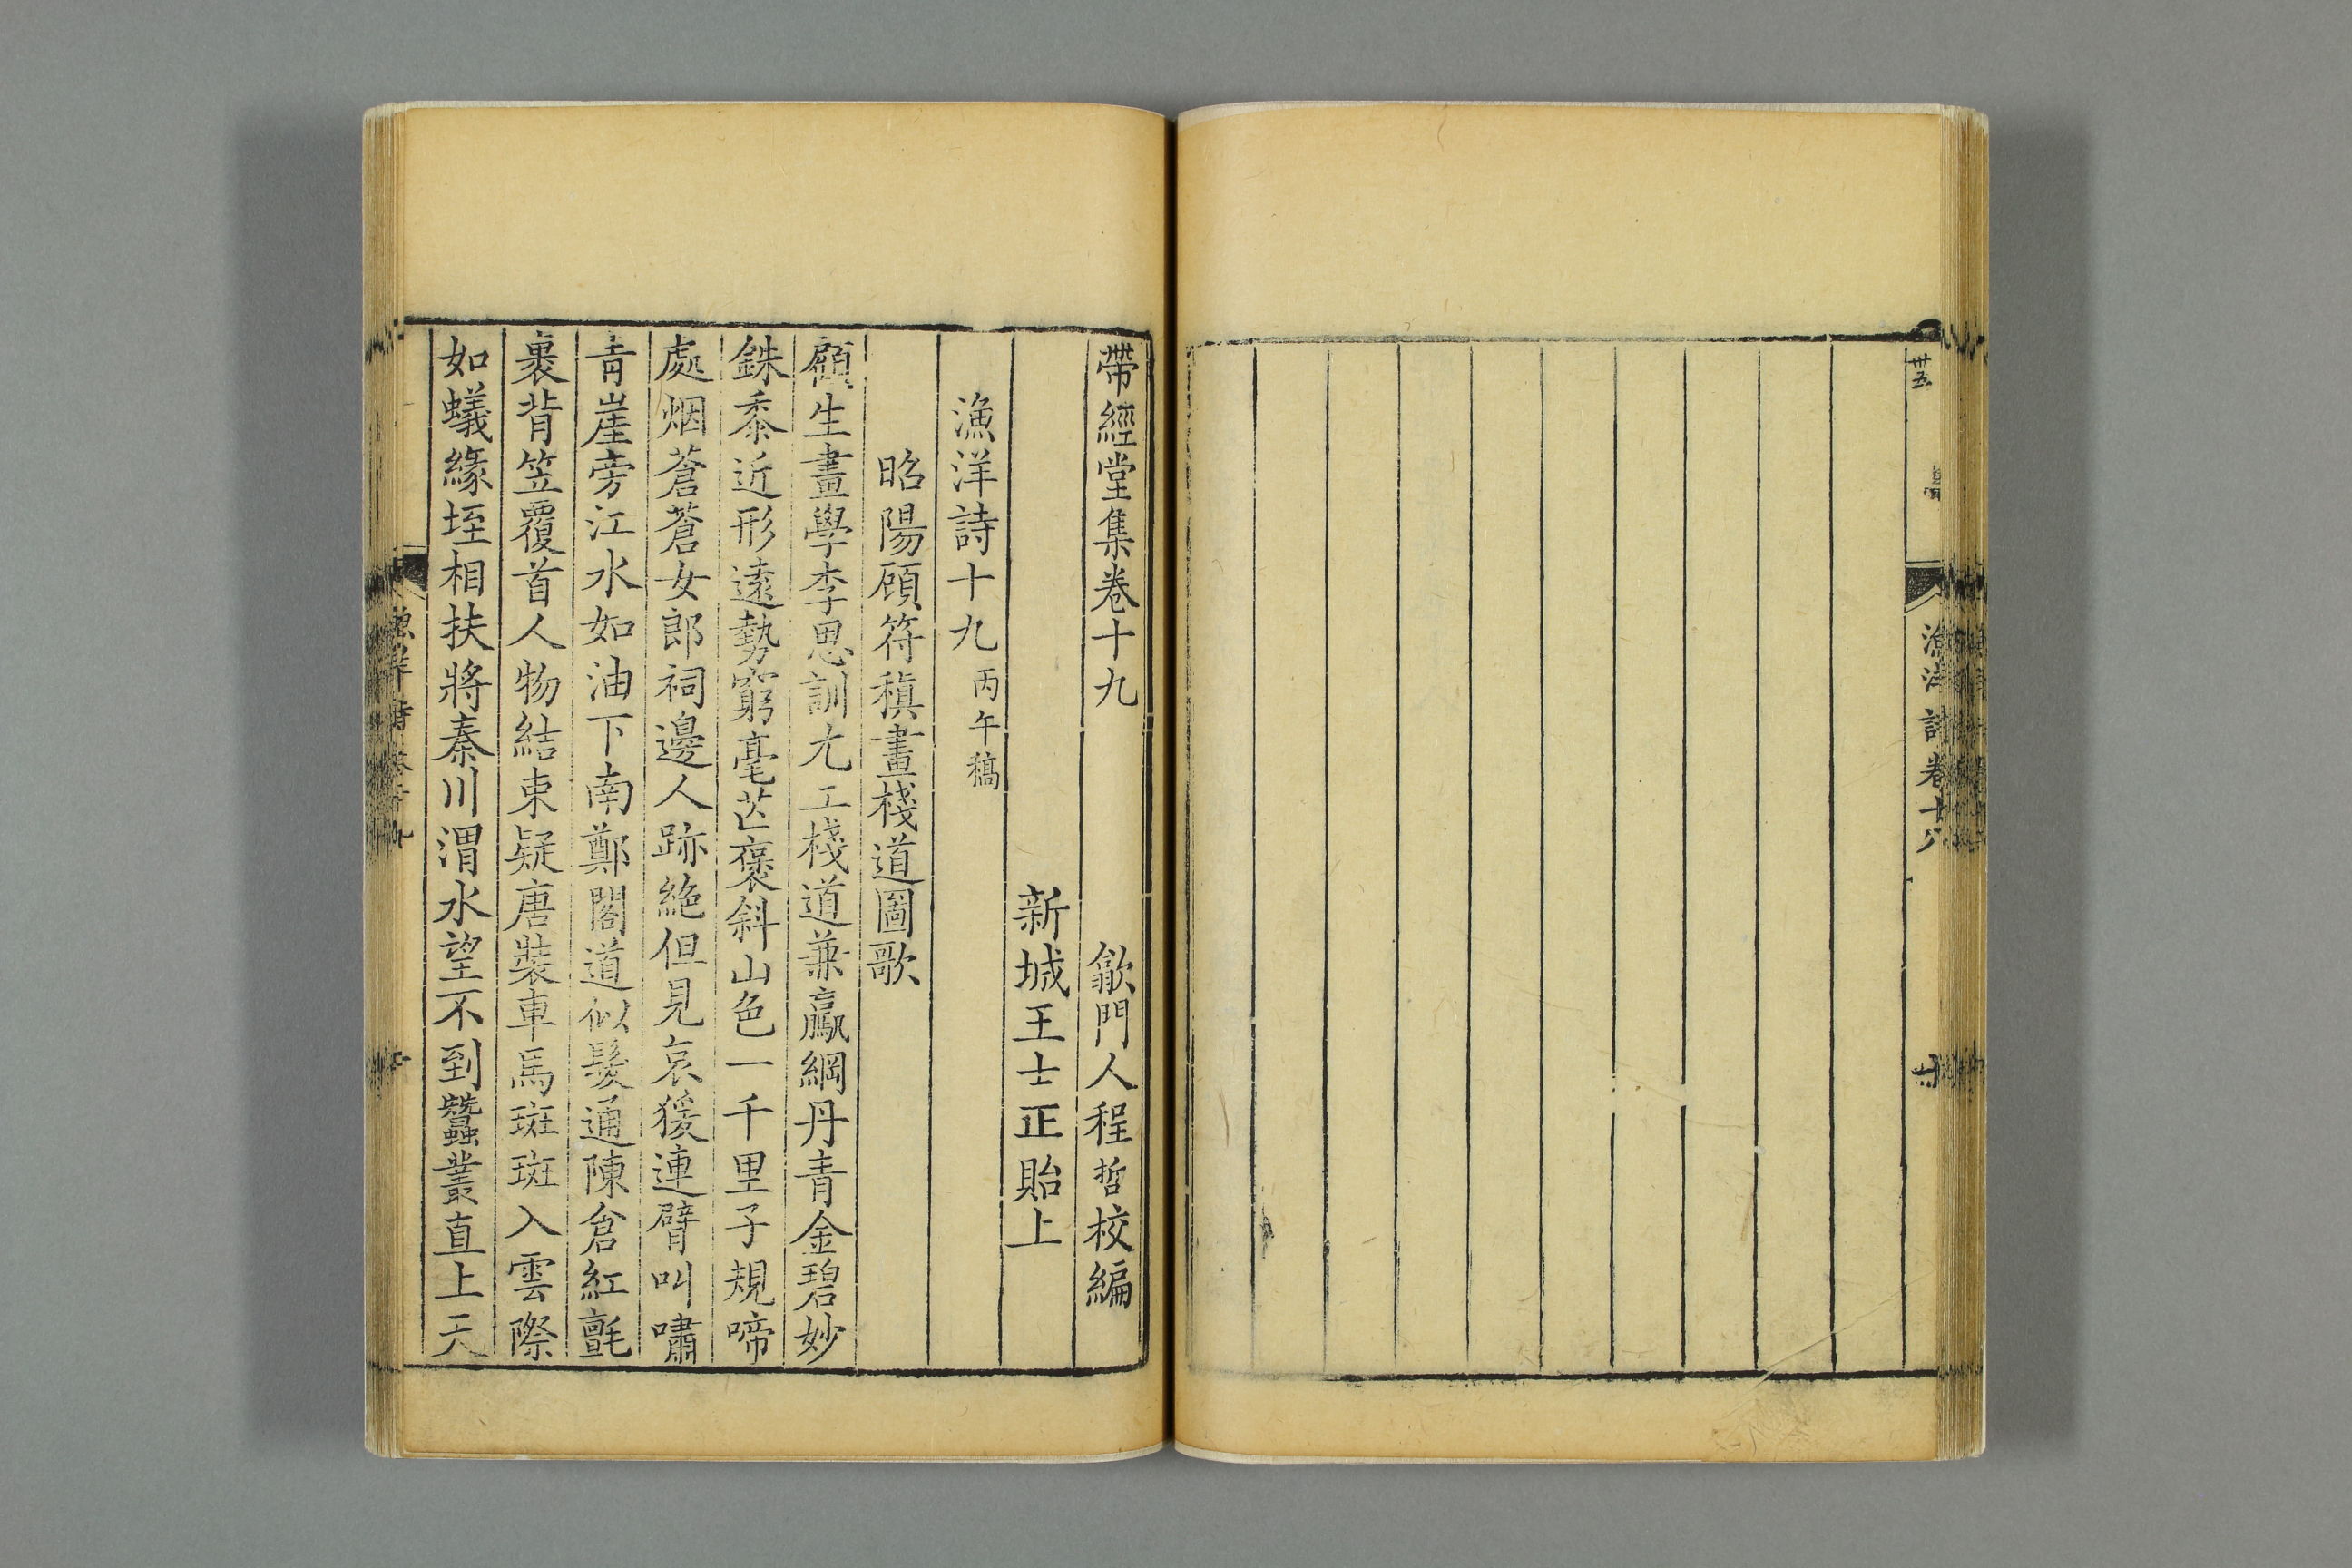 漁洋詩卷十八
帶經堂集卷十九
歙門人程哲校編
新城王士正貽上
漁洋詩十九丙午稿
昭陽顧符稹畫棧道圖歌
顧生畫學李思訓尤工棧道兼贏綱丹青金碧妙
銖黍近形遠勢窮毫芒褒斜山色一千里子規啼
處烟蒼蒼女郎祠邊人跡絶但見哀猨連臂叫嘯
青崖旁江水如油下南鄭閣道似髮通陳倉紅氈
裹背笠覆首人物結束疑唐裝車馬斑斑入雲際
如蟻緣垤相扶將秦川渭水望不到蠶叢直上天